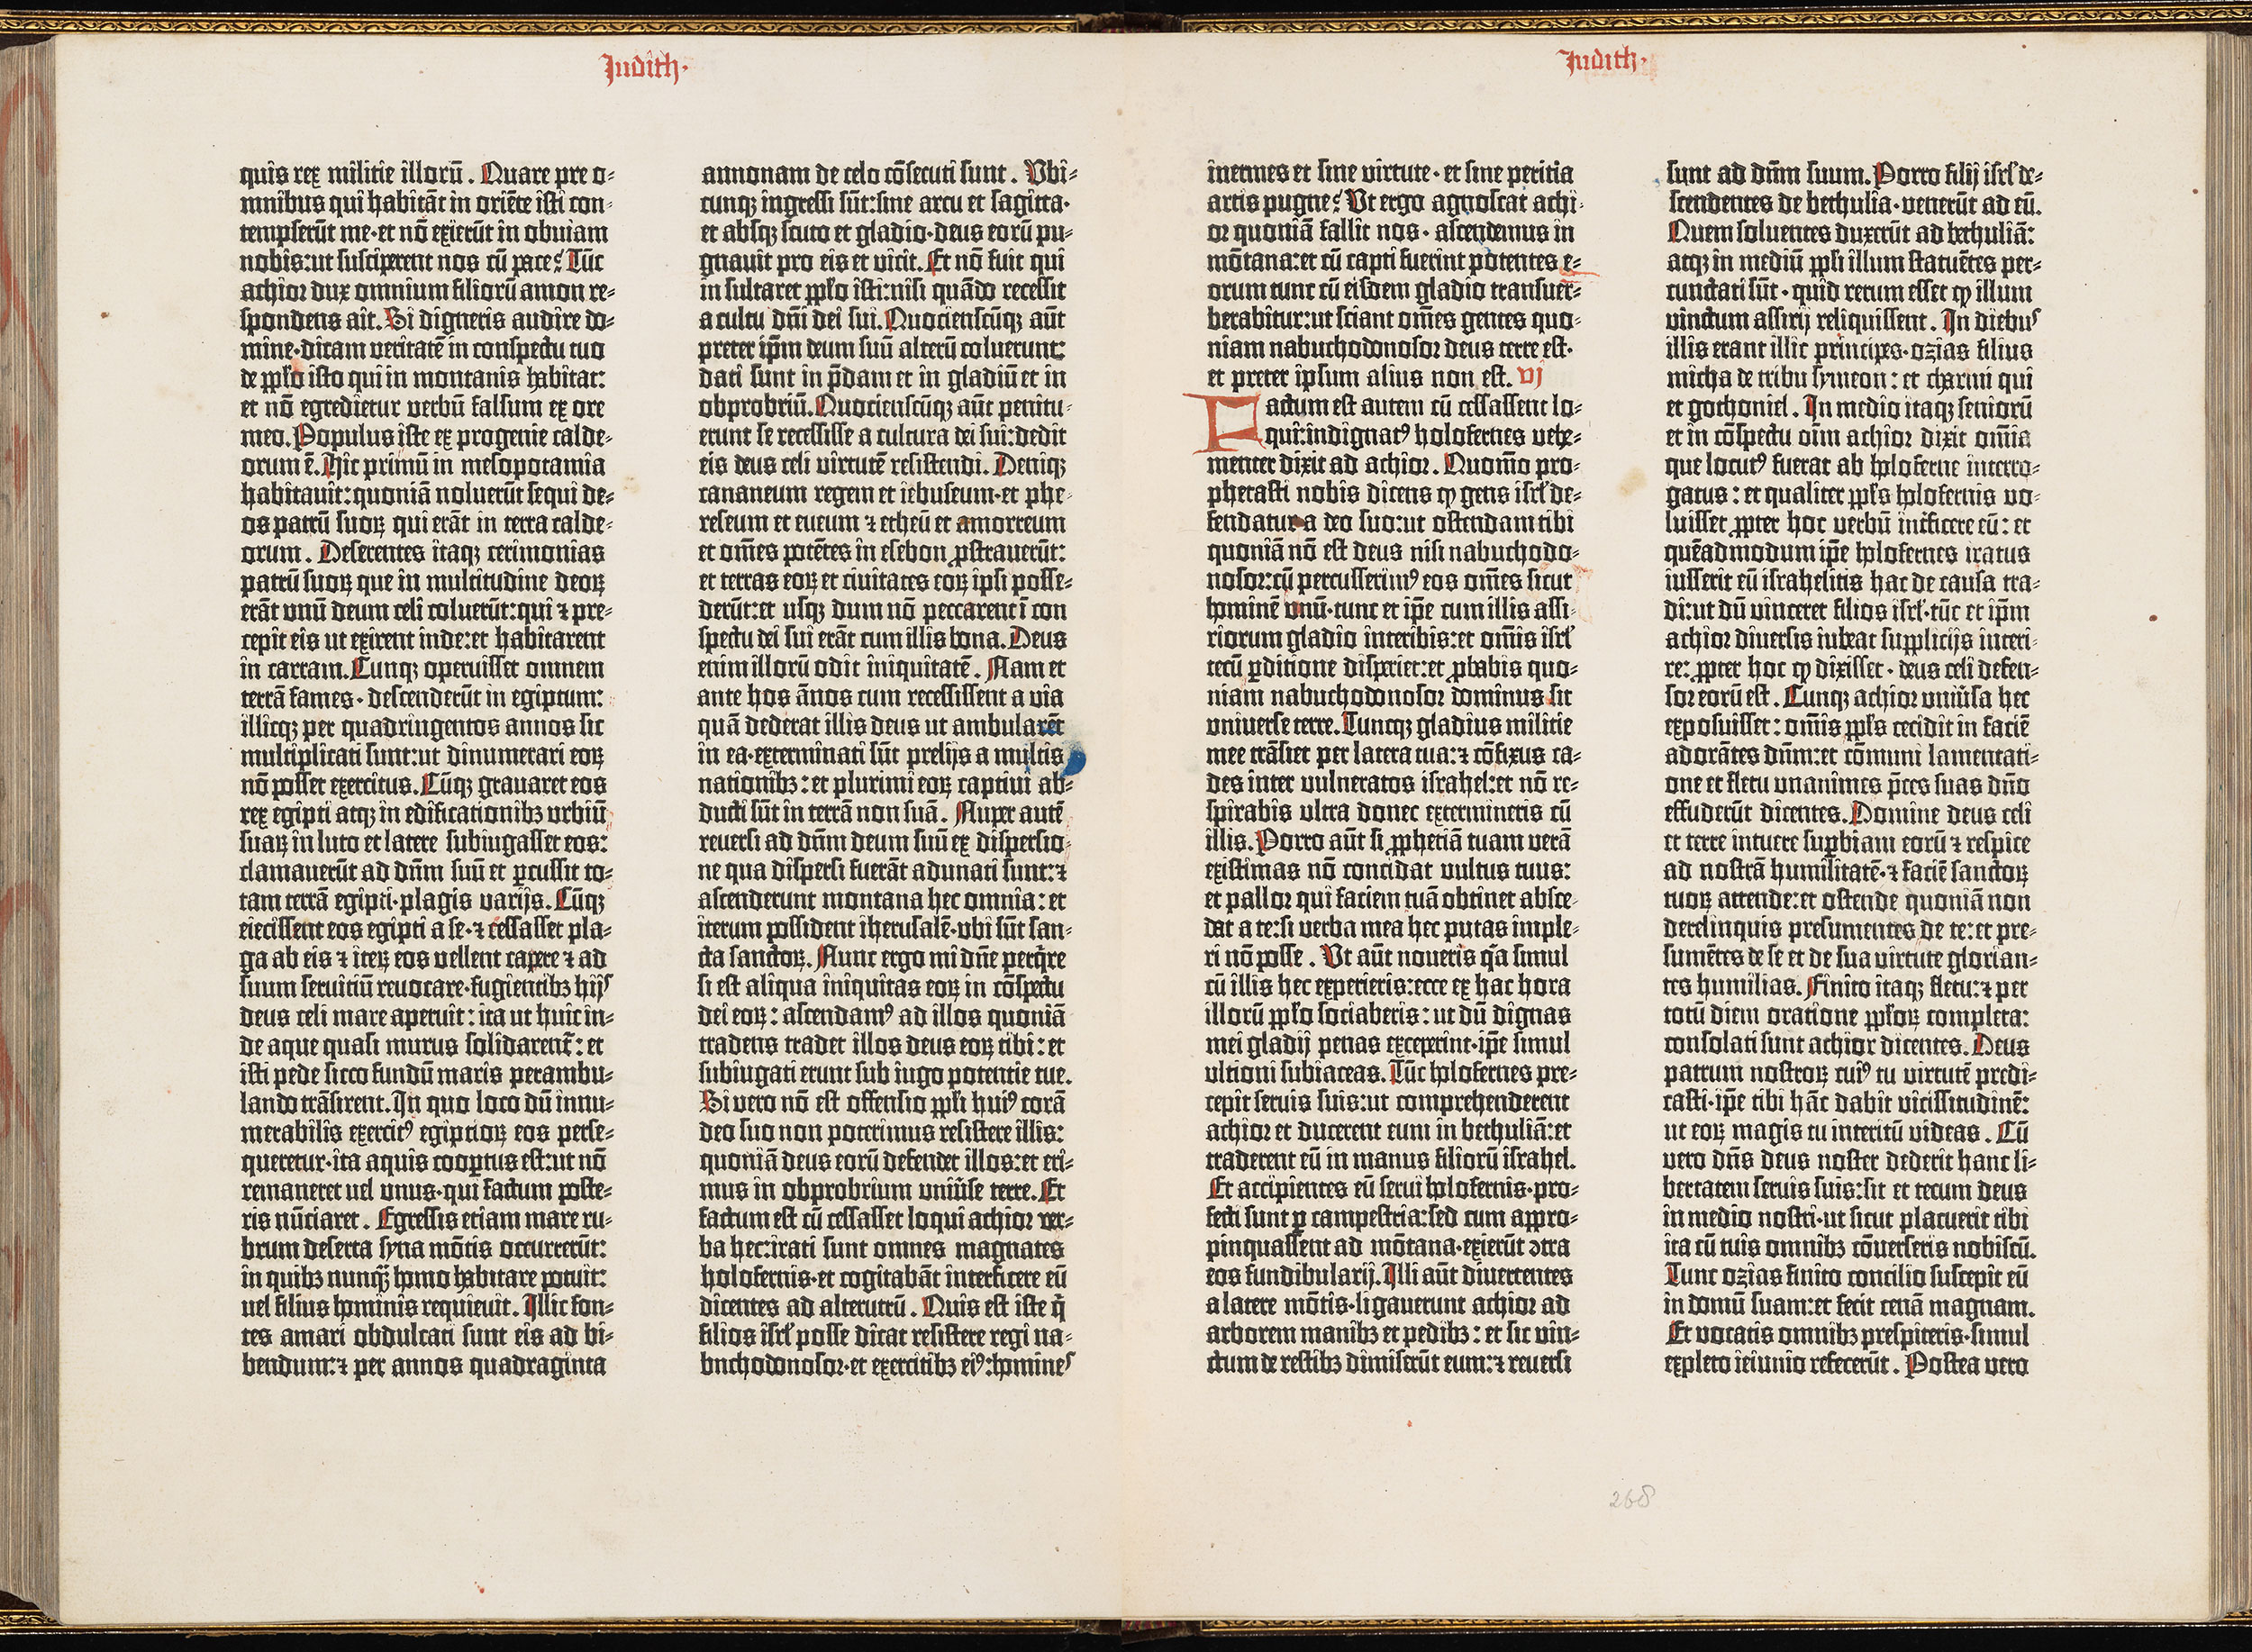 Judith·
quis rex militie illorū. Quare pre o-
mnibus qui habitāt in oriēte isti con-
tempserūt me·et nō exierūt in obuiam
nobis:ut susciperent nos cū pace? Tūc
achior dux omnium filiorū amon re-
spondens ait. Si digneris audire do-
mine·dicam veritatē in conspectu tuo
de ppl'o isto qui in montanis habitat:
et nō egredietur verbū falsum ex ore
meo. Populus iste ex progenie calde-
orum ē. Hic primū in mesopotamia
habitauit:quoniā noluerūt sequi de-
os patrū suoꝝ qui erāt in terra calde-
orum. Deserentes itaqꝫ cerimonias
patrū suoꝝ que in multitudine deoꝝ
erāt vnū deum celi coluerūt:qui ⁊ pre-
cepit eis ut exirent inde:et habitarent
in carram. Cunqꝫ operuisset omnem
terrā fames·descenderūt in egiptum:
illicqꝫ per quadringentos annos sic
multiplicati sunt:ut dinumerari eoꝝ
nō posset exercitus. Cūqꝫ grauaret eos
rex egipti atqꝫ in edificationibꝫ vrbiū
suaꝝ in luto et latere subiugasset eos:
clamauerūt ad dn̄m suū et ꝑcussit to-
tam terrā egipti·plagis varijs. Cūqꝫ
eiecissent eos egipti a se·⁊ cessasset pla-
ga ab eis ⁊ iteꝝ eos vellent capere ⁊ ad
suum seruitiū reuocare·fugientibꝫ hijs
deus celi mare aperuit: ita ut huic in-
de aque quasi murus solidarent̄: et
isti pede sicco fundū maris perambu-
lando trāsirent. In quo loco dū innu-
merabilis exercitꝰ egiptioꝝ eos perse-
queretur·ita aquis cooꝑtus est:ut nō
remaneret uel vnus·qui factum poste-
ris nūciaret. Egressis etiam mare ru-
brum deserta syna mōtis occurrerūt:
in quibꝫ nunqꝫ̄ homo habitare potuit:
uel filius hominis requieuit. Illic fon-
tes amari obdulcati sunt eis ad bi-
bendum:⁊ per annos quadraginta
annonam de celo cōsecuti sunt. Vbi-
cunqꝫ ingressi sūt:sine arcu et sagitta·
et absqꝫ scuto et gladio·deus eorū pu-
gnauit pro eis et vicit. Et nō fuit qui
insultaret ppl'o isti:nisi quādo recessit
a cultu dn̄i dei sui. Quocienscūqꝫ aūt
preter ip̄m deum suū alterū coluerunt:
dati sunt in p̄dam et in gladiū et in
obprobriū. Quocienscūqꝫ aūt penitu-
erunt se recessisse a cultura dei sui:dedit
eis deus celi virtutē resistendi. Deniqꝫ
cananeum regem et iebuseum·et phe-
reseum et eueum ⁊ etheū et amorreum
et om̄es potētes in esebon ꝓstrauerūt:
et terras eoꝝ et ciuitates eoꝝ ipsi posse-
derūt:et usqꝫ dum nō peccarent ī con
spectu dei sui erāt cum illis bona. Deus
enim illorū odit iniquitatē. Nam et
ante hos ānos cum recessissent a via
quā dederat illis deus ut ambularēt
in ea·exterminati sūt prelijs a multis
nationibꝫ: et plurimi eoꝝ captiui ab-
ducti sūt in terrā non suā. Nuper autē
reuersi ad dn̄m deum suū ex dispersio-
ne qua dispersi fuerāt adunati sunt:⁊
ascenderunt montana hec omnia: et
iterum possident iherusalē·vbi sūt san-
cta sanctoꝝ. Nunc ergo mi dn̄e perq̄re
si est aliqua iniquitas eoꝝ in cōspectu
dei eoꝝ: ascendamꝰ ad illos quoniā
tradens tradet illos deus eoꝝ tibi: et
subiugati erunt sub iugo potentie tue.
Si vero nō est offensio ppl'i huiꝰ corā
deo suo non poterimus resistere illis:
quoniā deus eorū defendet illos:et eri-
mus in obprobrium vniūse terre. Et
factum est cū cessasset loqui achior ver-
ba hec:irati sunt omnes magnates
holofernis·et cogitabāt interficere eū
dicentes ad alterutrū. Quis est iste q̄
filios isrl' posse dicat resistere regi na-
buchodonosor·et exercitibꝫ eiꝰ:homines
Judith·
inermes et sine virtute· et sine peritia
artis pugne? Vt ergo agnoscat achi-
or quoniā fallit nos· ascendemus in
mōtana:et cū capti fuerint potentes e-
orum tunc cū eisdem gladio transuer-
berabitur:ut sciant om̄es gentes quo-
niam nabuchodonosor deus terre est·
et preter ipsum alius non est. vj
Factum est autem cū cessassent lo-
qui:indignatꝰ holofernes vehe-
menter dixit ad achior. Quom̄o pro-
phetasti nobis dicens ꝙ gens isrl' de-
fendatur a deo suo:ut ostendam tibi
quoniā nō est deus nisi nabuchodo-
nosor:cū percusserimꝰ eos om̄es sicut
hominē vnū·tunc et ip̄e cum illis assi-
riorum gladio interibis:et om̄is isrl'
tecū ꝑditione disperiet:et ꝓbabis quo-
niam nabuchodonosor dominus sit
vniuerse terre. Tuncqꝫ gladius militie
mee trāsiet per latera tua:⁊ cōfixus ca-
des inter vulneratos israhel:et nō re-
spirabis ultra donec extermineris cū
illis. Porro aūt si ꝓphetiā tuam verā
existimas nō concidat vultus tuus:
et pallor qui faciem tuā obtinet absce-
dat a te:si verba mea hec putas imple-
ri nō posse. Vt aūt noueris q̄a simul
cū illis hec experieris:ecce ex hac hora
illorū ppl'o sociaberis: ut dū dignas
mei gladij penas exceperint·ip̄e simul
ultioni subiaceas. Tūc holofernes pre-
cepit seruis suis:ut comprehenderent
achior et ducerent eum in bethuliā:et
traderent eū in manus filiorū israhel.
Et accipientes eū serui holofernis·pro-
fecti sunt ꝑ campestria:sed cum appro-
pinquassent ad mōtana·exierūt ꝯtra
eos fundibularij. Illi aūt diuertentes
a latere mōtis·ligauerunt achior ad
arborem manibꝫ et pedibꝫ: et sic vin-
ctum de restibꝫ dimiserūt eum:⁊ reuersi
sunt ad dn̄m suum. Porro filij isrl' de-
scendentes de bethulia·venerūt ad eū.
Quem soluentes duxerūt ad bethuliā:
atqꝫ in mediū ppl'i illum statuētes per-
cunctati sūt·quid rerum esset ꝙ illum
vinctum assirij reliquissent. In diebus
illis erant illic principes·ozias filius
micha de tribu symeon: et charmi qui
et gothoniel. In medio itaqꝫ seniorū
et in cōspectu oīm achior dixit om̄ia
que locutꝰ fuerat ab holoferne interro-
gatus: et qualiter ppl's holofernis vo-
luisset ꝓpter hoc verbū inťficere eū: et
quēadmodum ip̄e holofernes iratus
iusserit eū israhelitis hac de causa tra-
di:ut dū vinceret filios isrl'·tūc et ip̄m
achior diuersis iubeat supplicijs interi-
re: ꝓpter hoc ꝙ dixisset·deus celi defen-
sor eorū est. Cunqꝫ achior vniūsa hec
exposuisset: om̄is ppl's cecidit in faciē
adorātes dn̄m:et cōmuni lamentati-
one et fletu vnanimes p̄ces suas dn̄o
effuderūt dicentes. Domine deus celi
et terre intuere suꝑbiam eorū ⁊ respice
ad nostrā humilitatē·⁊ faciē sanctoꝝ
tuoꝝ attende:et ostende quoniā non
derelinquis presumentes de te:et pre-
sumētes de se et de sua virtute glorian-
tes humilias. Finito itaqꝫ fletu:⁊ per
totū diem oratione ppl'oꝝ completa:
consolati sunt achior dicentes. Deus
patrum nostroꝝ cuiꝰ tu virtutē predi-
casti·ip̄e tibi hāc dabit vicissitudinē:
ut eoꝝ magis tu interitū videas. Cū
vero dn̄s deus noster dederit hanc li-
bertatem seruis suis:sit et tecum deus
in medio nostri·ut sicut placuerit tibi
ita cū tuis omnibꝫ cōuerseris nobiscū.
Tunc ozias finito concilio suscepit eū
in domū suam:et fecit cenā magnam.
Et vocatis omnibꝫ prespiteris·simul
expleto ieiunio refecerūt. Postea vero
268